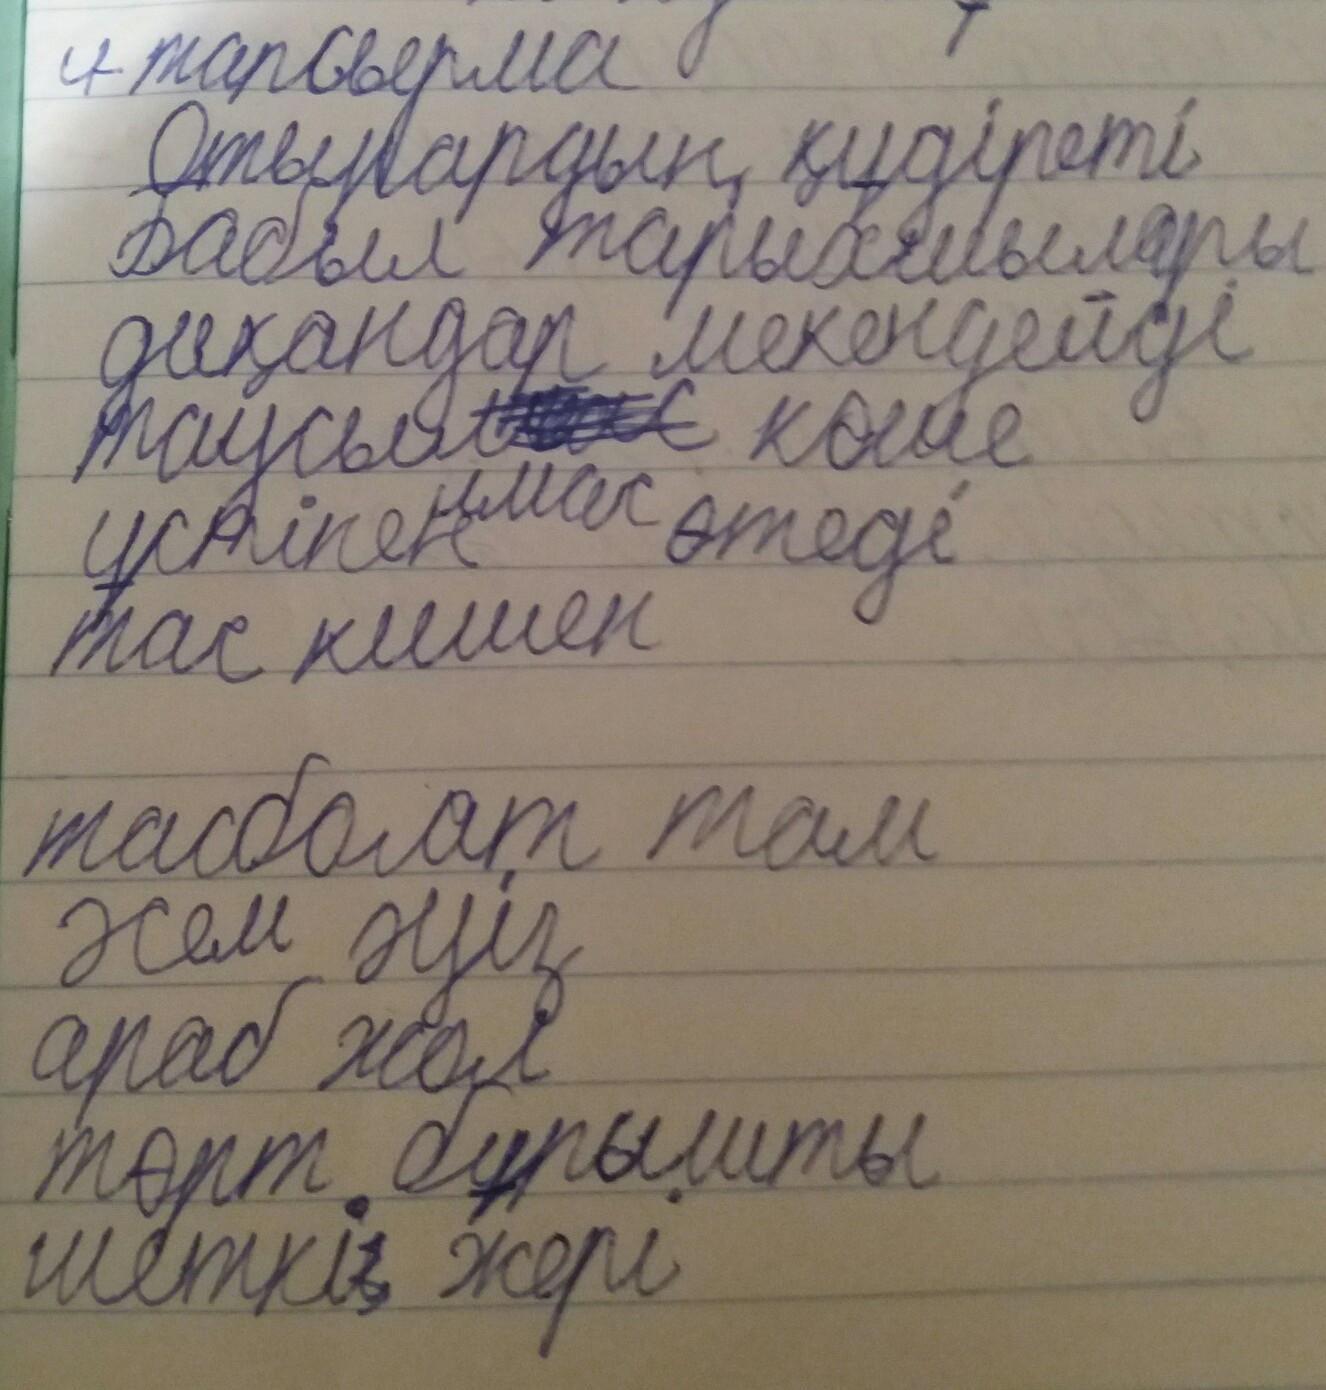 4 тарсырма
Отырардың құдіреті
Бабыл тарыхшылары
диқандар мекендейді
таусыл көше
ымас
үстінен өтеді
тас кишен
тасболат там
жем
араб жол
төрт бұрышты
шеткі жері